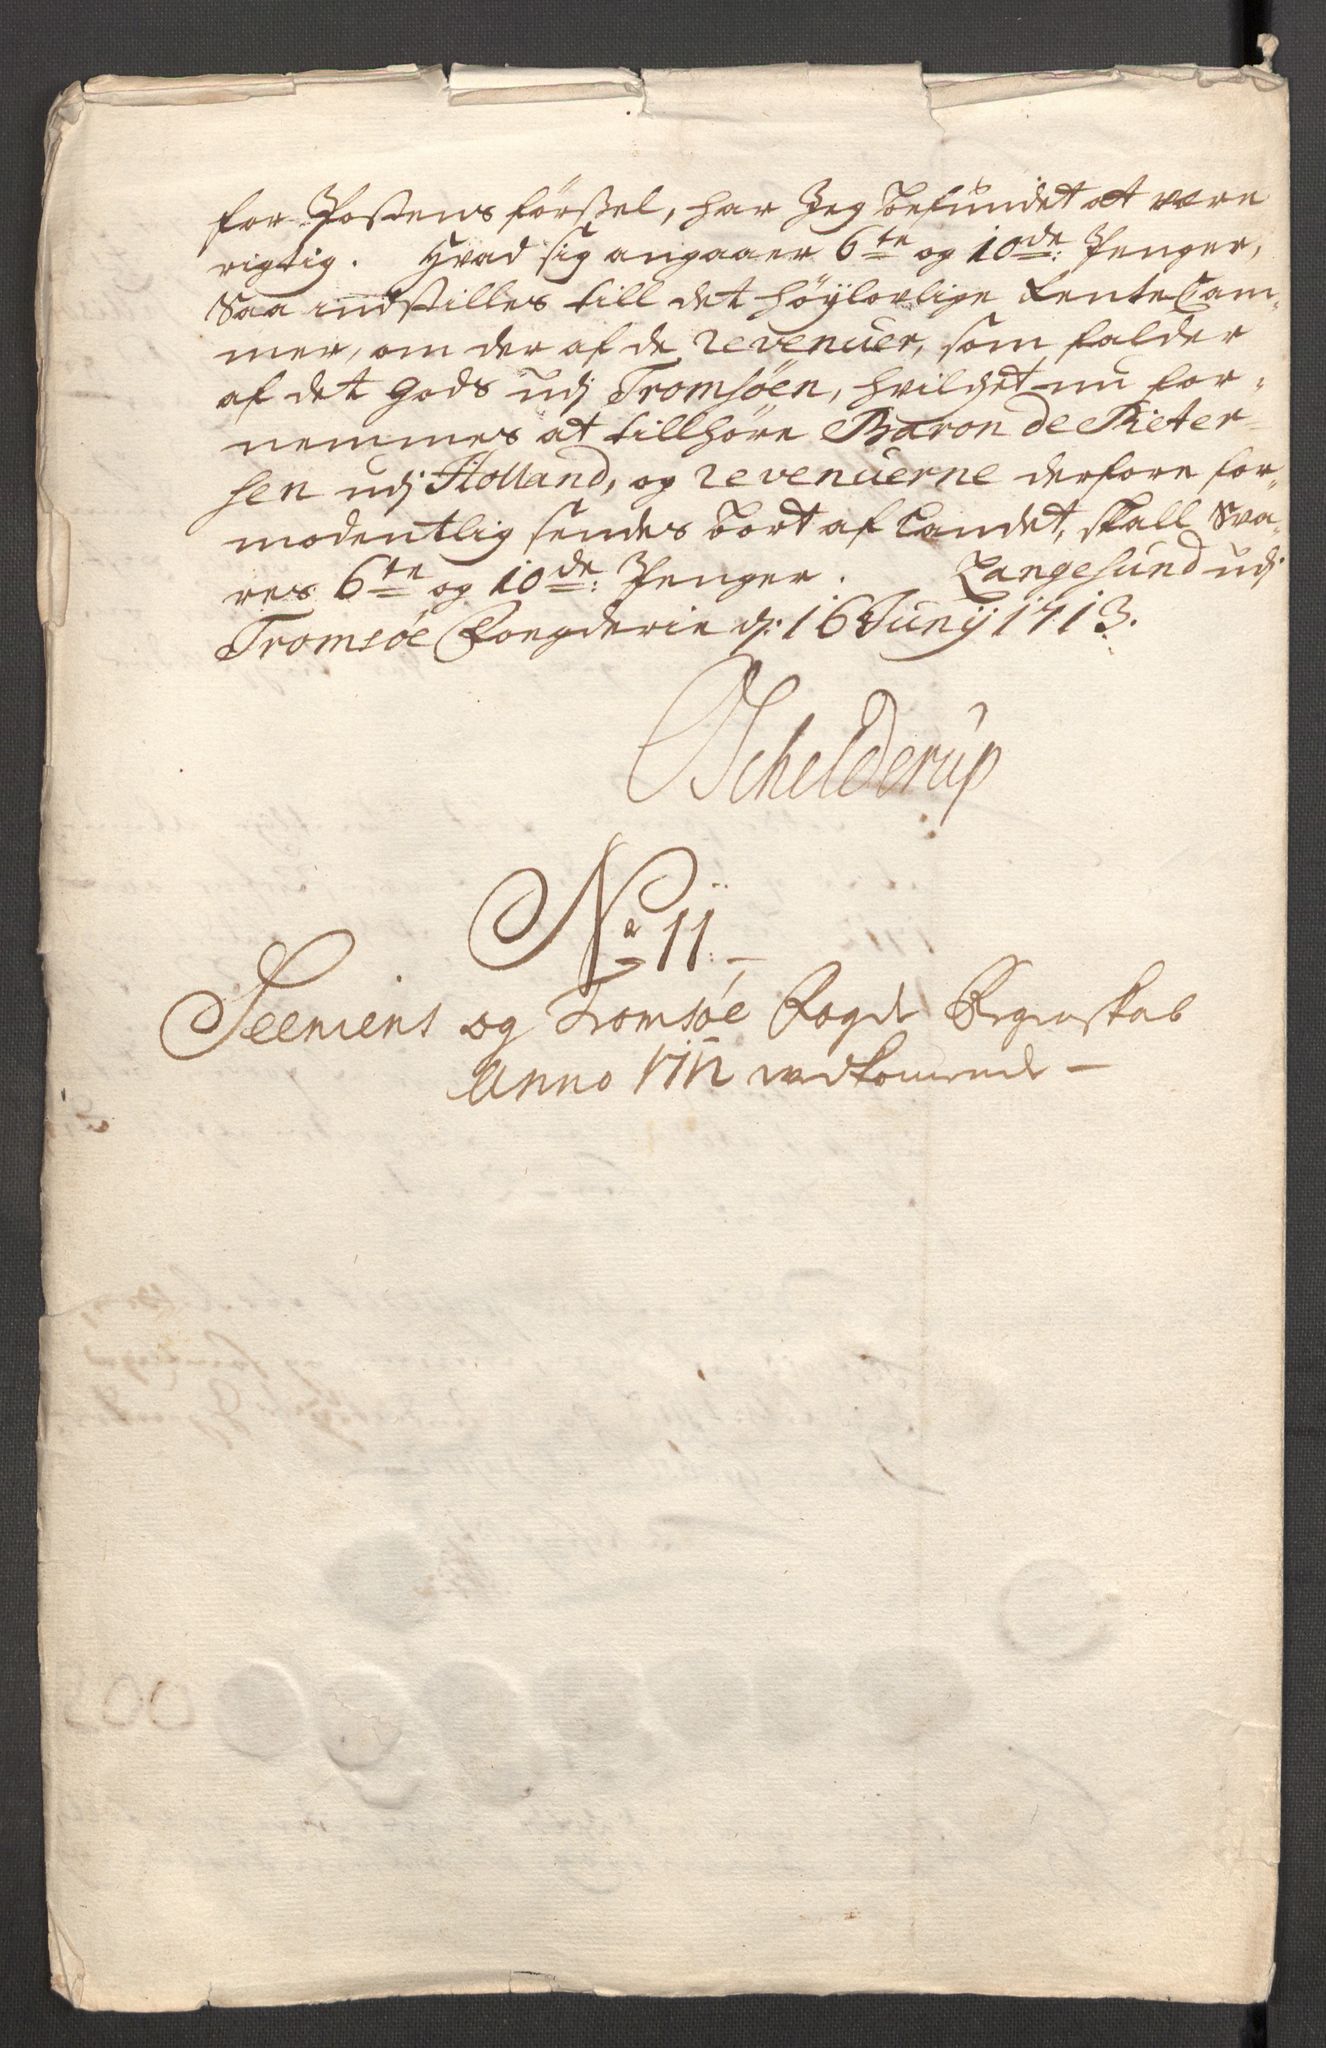 for Postens förßel, har Jeg befundet at være
rigtig. Hvad sig angaaer 6te og 10de: Penger,
Saa indstilles till det höylovlige Rente Cam-
mer, om der af de revenuer, som falder
af det gods udj Tromsöen, hvilchet nu for-
nemmes at tillhöre Baron de Pieter-
sen udj Holland, og revenuerne derfore for-
modentlig sendes bort af Landet, skall Sva-
res 6te og 10de: Penger. Langesund udj
Tromsøe Fougderie d: 16 Junij 1713.
Schelderup
No 11
Seeniens og Tromsøe Fogd Regenskab
Anno 1712 vedkomende